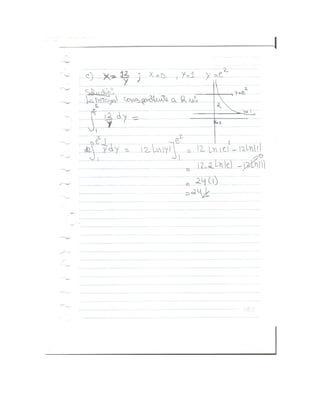 c) x = 12/y ; x=0 , y=1 y=e²
Solución:
La integral correspondiente a R es:
y=e²
R
y=1
x=0
∫₁^e² 12/y dy =
12∫₁^e² 1/y dy = 12 Ln|y|]₁^e² = 12 Ln|e|² - 12Ln|1|
= 12.2Ln|e| - 12Ln|1| 0
= 24(1)
= 24